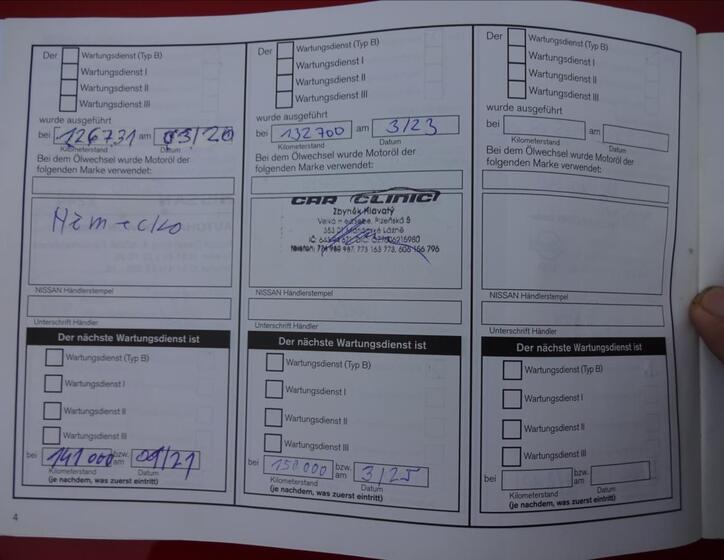 Der Wartungsdienst (Typ B)
Wartungsdienst I
Wartungsdienst II
Wartungsdienst III
wurde ausgeführt
bei 126731 am 03/20
Kilometerstand Datum
Bei dem Ölwechsel wurde Motoröl der
folgenden Marke verwendet:
Německo
NISSAN Händlerstempel
Unterschrift Händler
Der nächste Wartungsdienst ist
Wartungsdienst (Typ B)
Wartungsdienst I
Wartungsdienst II
Wartungsdienst III
bei 141 000 bzw. am 01/21
Kilometerstand Datum
(je nachdem, was zuerst eintritt)
4
Der Wartungsdienst (Typ B)
Wartungsdienst I
Wartungsdienst II
Wartungsdienst III
wurde ausgeführt
bei 132 700 am 3/23
Kilometerstand Datum
Bei dem Ölwechsel wurde Motoröl der
folgenden Marke verwendet:
CAR CLINIC
Zbyněk Hlavatý
Plzeňská
353 01 Mariánské Lázně
IČ:
NISSAN Händlerstempel
Unterschrift Händler
Der nächste Wartungsdienst ist
Wartungsdienst (Typ B)
Wartungsdienst I
Wartungsdienst II
Wartungsdienst III
bei 150 000 bzw. am 3/25
Kilometerstand Datum
(je nachdem, was zuerst eintritt)
Der Wartungsdienst (Typ B)
Wartungsdienst I
Wartungsdienst II
Wartungsdienst III
wurde ausgeführt
bei am
Kilometerstand Datum
Bei dem Ölwechsel wurde Motoröl der
folgenden Marke verwendet:
NISSAN Händlerstempel
Unterschrift Händler
Der nächste Wartungsdienst ist
Wartungsdienst (Typ B)
Wartungsdienst I
Wartungsdienst II
Wartungsdienst III
bei bzw. am
Kilometerstand Datum
(je nachdem, was zuerst eintritt)